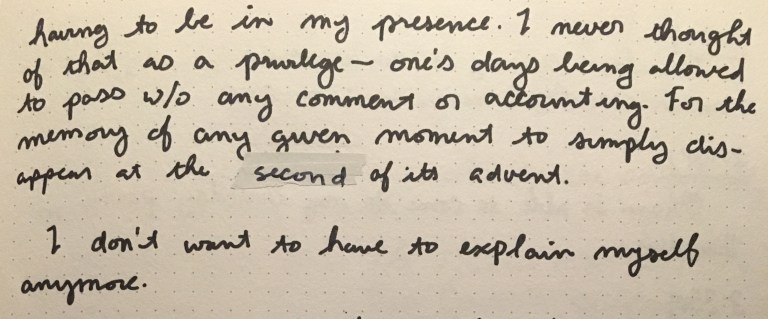 having to be in my presence. I never thought
of that as a privilege — one's days being allowed
to pass w/o any comment or accounting. For the
memory of any given moment to simply dis-
appear at the second of its advent.
I don't want to have to explain myself
anymore.